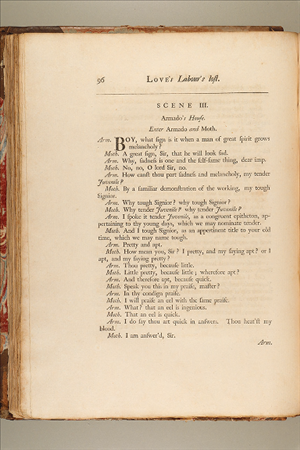 96 LOVE's Labour's lost.
SCENE III.
Armado's House.
Enter Armado and Moth.
Arm. BOY, what sign is it when a man of great spirit grows
melancholy?
Moth. A great sign, Sir, that he will look sad.
Arm. Why, sadness is one and the self-same thing, dear imp.
Moth. No, no, O lord Sir, no.
Arm. How canst thou part sadness and melancholy, my tender
Juvenile?
Moth. By a familiar demonstration of the working, my tough
Signior.
Arm. Why tough Signior? why tough Signior?
Moth. Why tender Juvenile? why tender Juvenile?
Arm. I spoke it tender Juvenile, as a congruent epitheton, ap-
pertaining to thy young days, which we may nominate tender.
Moth. And I tough Signior, as an appertinent title to your old
time, which we may name tough.
Arm. Pretty and apt.
Moth. How mean you, Sir? I pretty, and my saying apt? or I
apt, and my saying pretty?
Arm. Thou pretty, because little.
Moth. Little pretty, because little; wherefore apt?
Arm. And therefore apt, because quick.
Moth. Speak you this in my praise, master?
Arm. In thy condign praise.
Moth. I will praise an eel with the same praise.
Arm. What? that an eel is ingenious.
Moth. That an eel is quick.
Arm. I do say thou art quick in answers. Thou heat'st my
blood.
Moth. I am answer'd, Sir.
Arm.